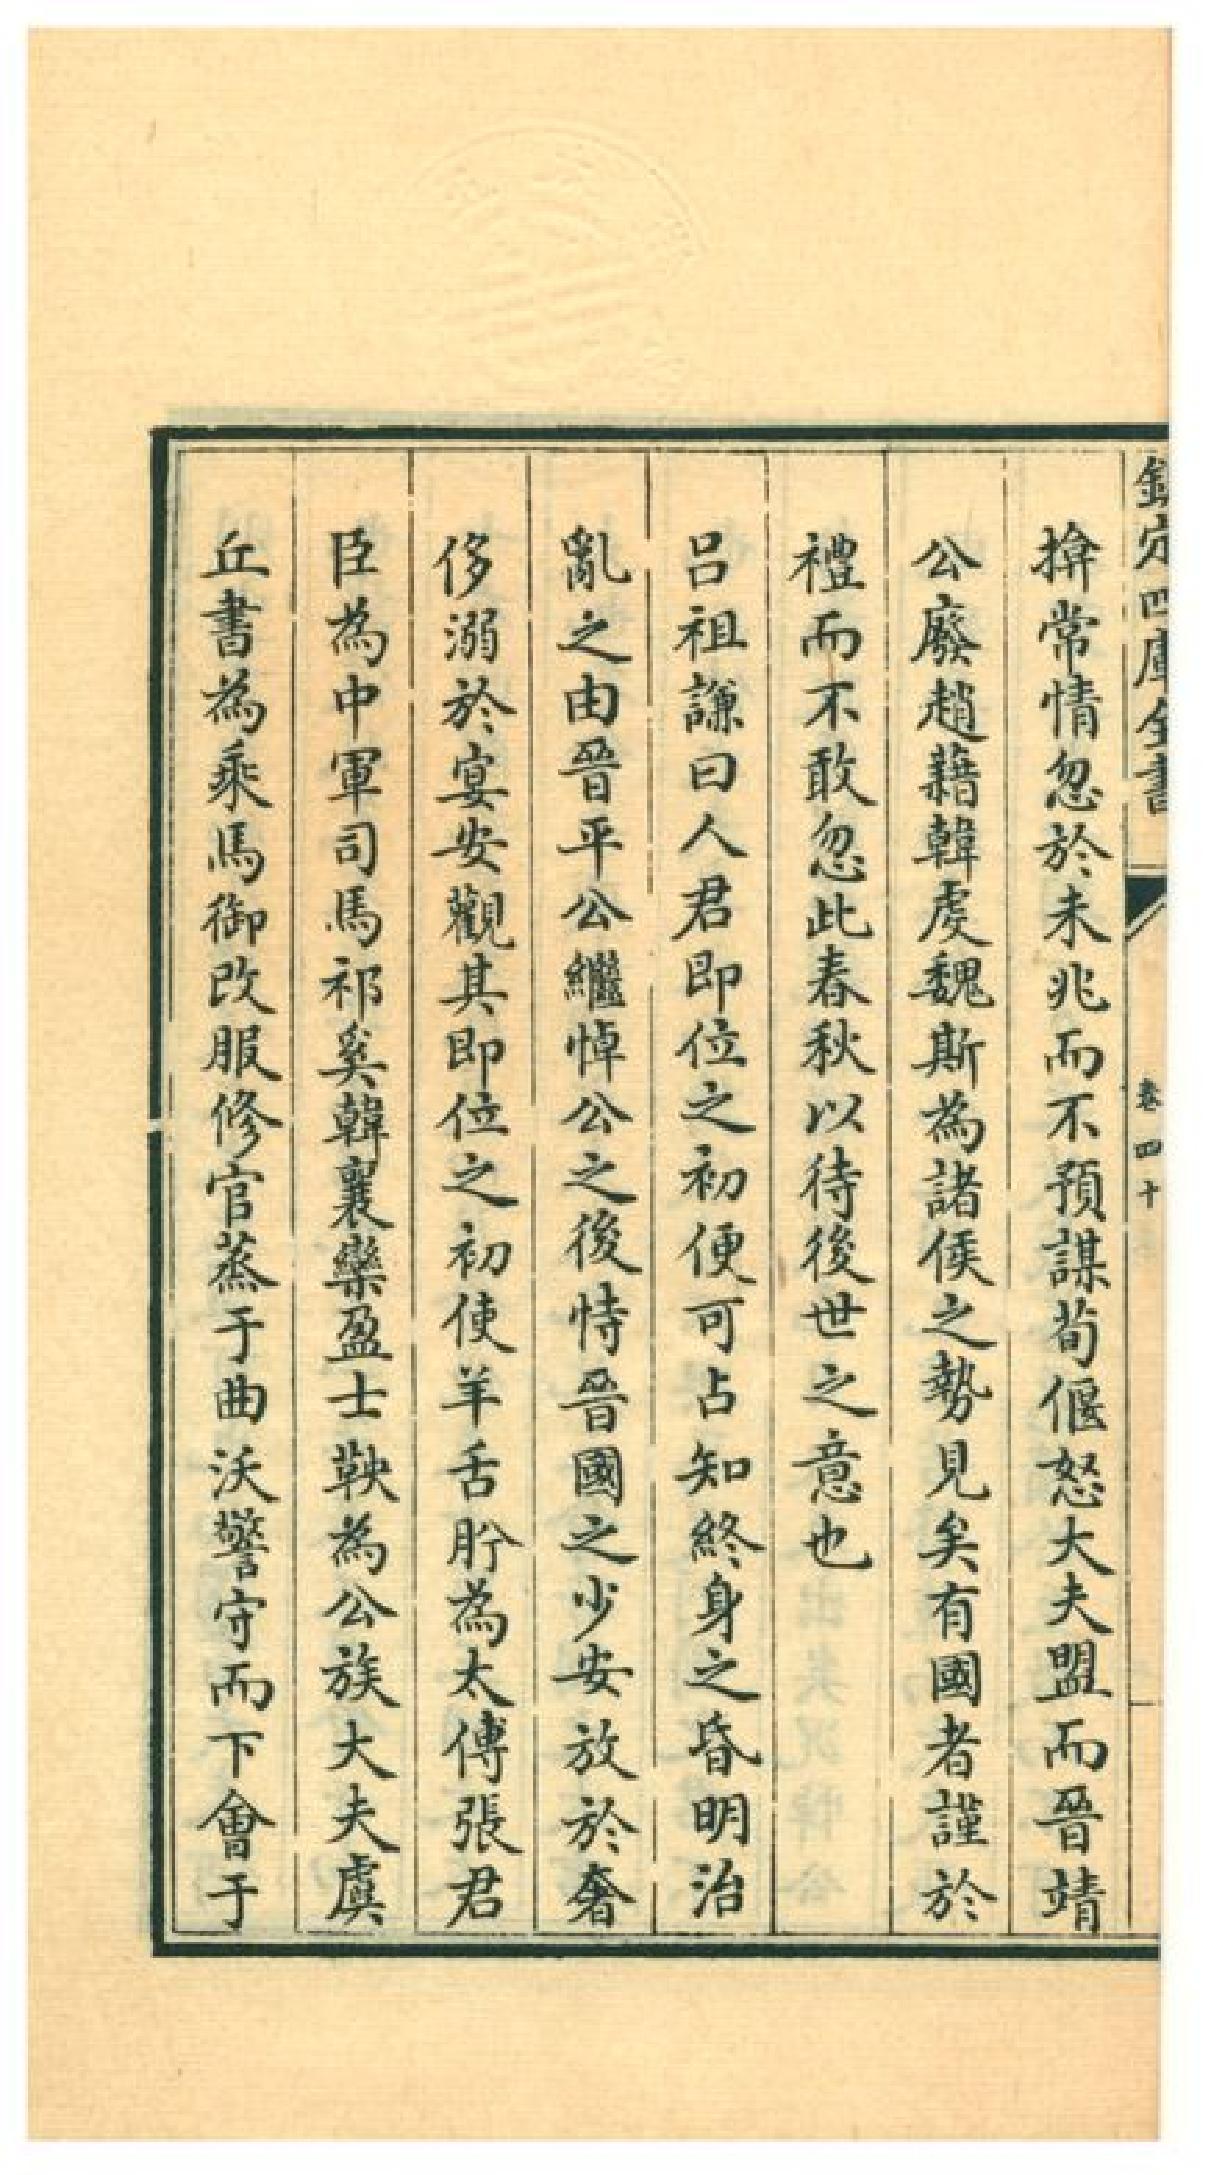 欽定四庫全書
卷四十
揜常情忽於未兆而不預謀荀偃怒大夫盟而晉靖
公廢趙藉韓䖍魏斯為諸侯之勢見矣有國者謹於
禮而不敢忽此春秋以待後世之意也
吕祖謙曰人君即位之初便可占知終身之昏明治
亂之由晉平公繼悼公之後恃晉國之少安放於奢
侈溺於宴安觀其即位之初使羊舌肸為太傅張君
臣為中軍司馬祁奚韓襄欒盈士鞅為公族大夫虞
丘書為乘馬御改服修官烝于曲沃警守而下會于